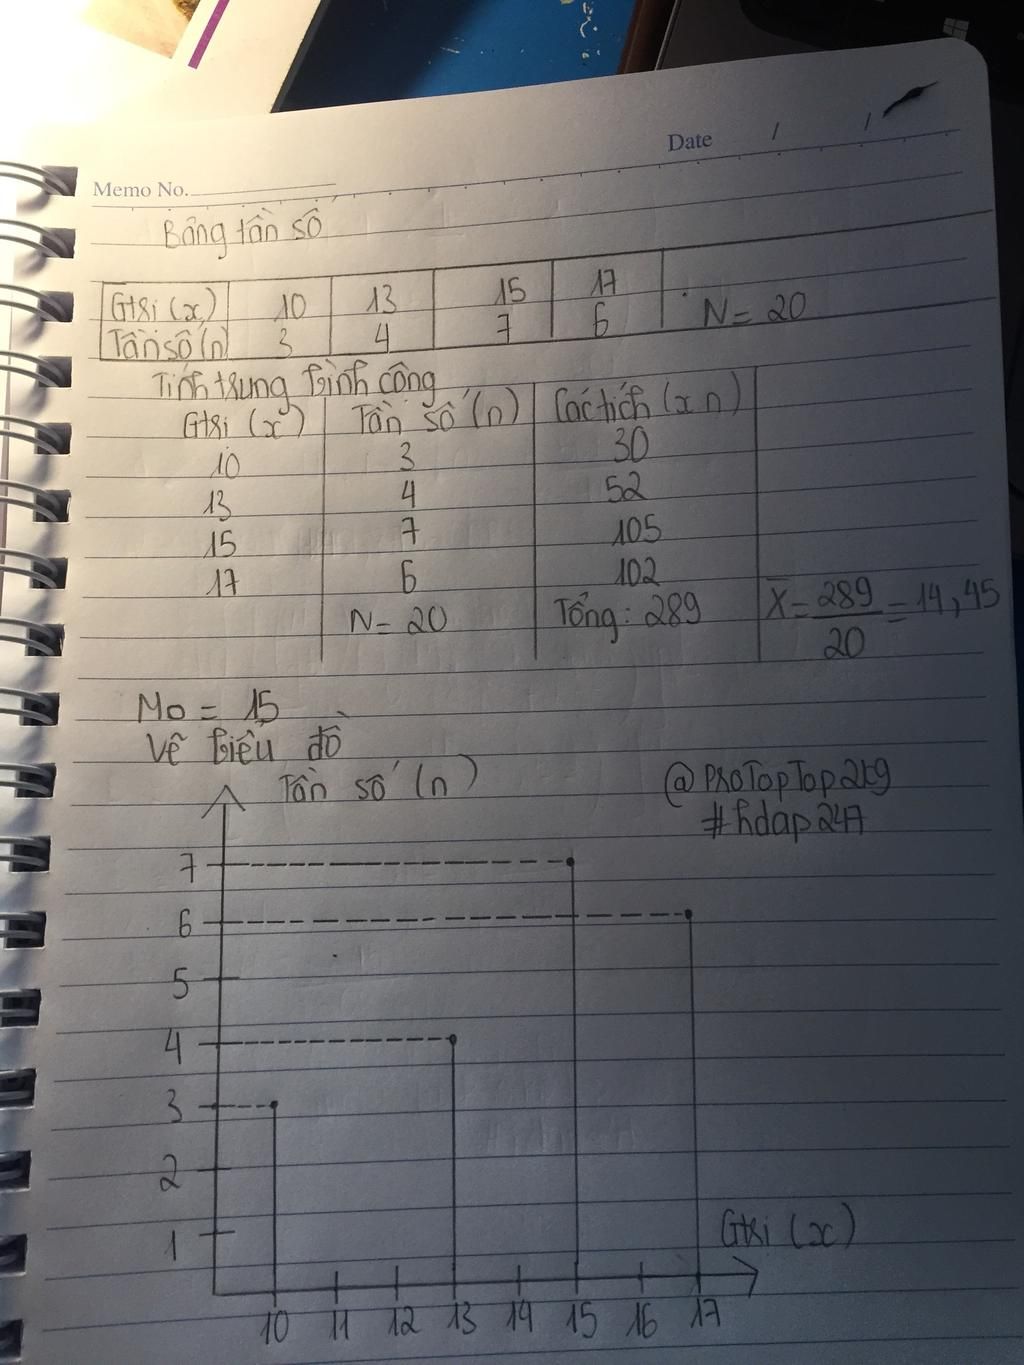 Date / /
Memo No.
Bảng tần số
Gtri (x) 10 13 15 17
Tần số (n) 3 4 7 6 N = 20
Tính trung bình cộng
Gtri (x) Tần số (n) Các tích (x n)
10 3 30
13 4 52
15 7 105
17 6 102
N = 20 Tổng: 289 X̄ = 289/20 = 14,45
Mo = 15
Vẽ biểu đồ
Tần số (n)
@ProTopTop2k9
#hdap247
7
6
5
4
3
2
1
Gtri (x)
10 11 12 13 14 15 16 17